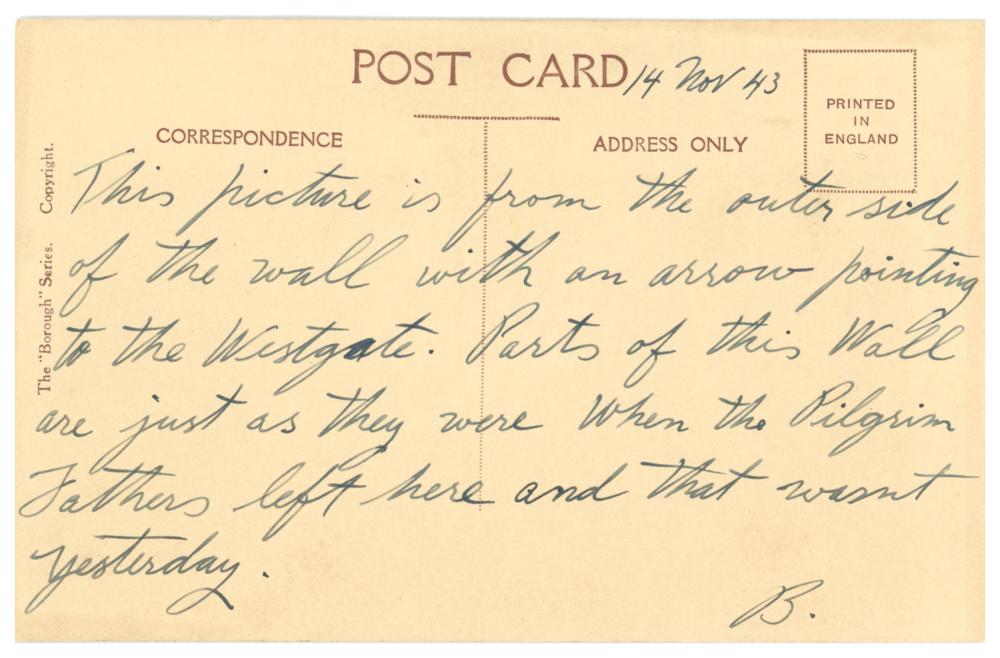 POST CARD 14 Nov 43
PRINTED
IN
ENGLAND
CORRESPONDENCE
ADDRESS ONLY
The "Borough" Series. Copyright.
This picture is from the outer side
of the wall with an arrow pointing
to the Westgate. Parts of this Wall
are just as they were When the Pilgrim
Fathers left here and that wasnt
yesterday.
B.